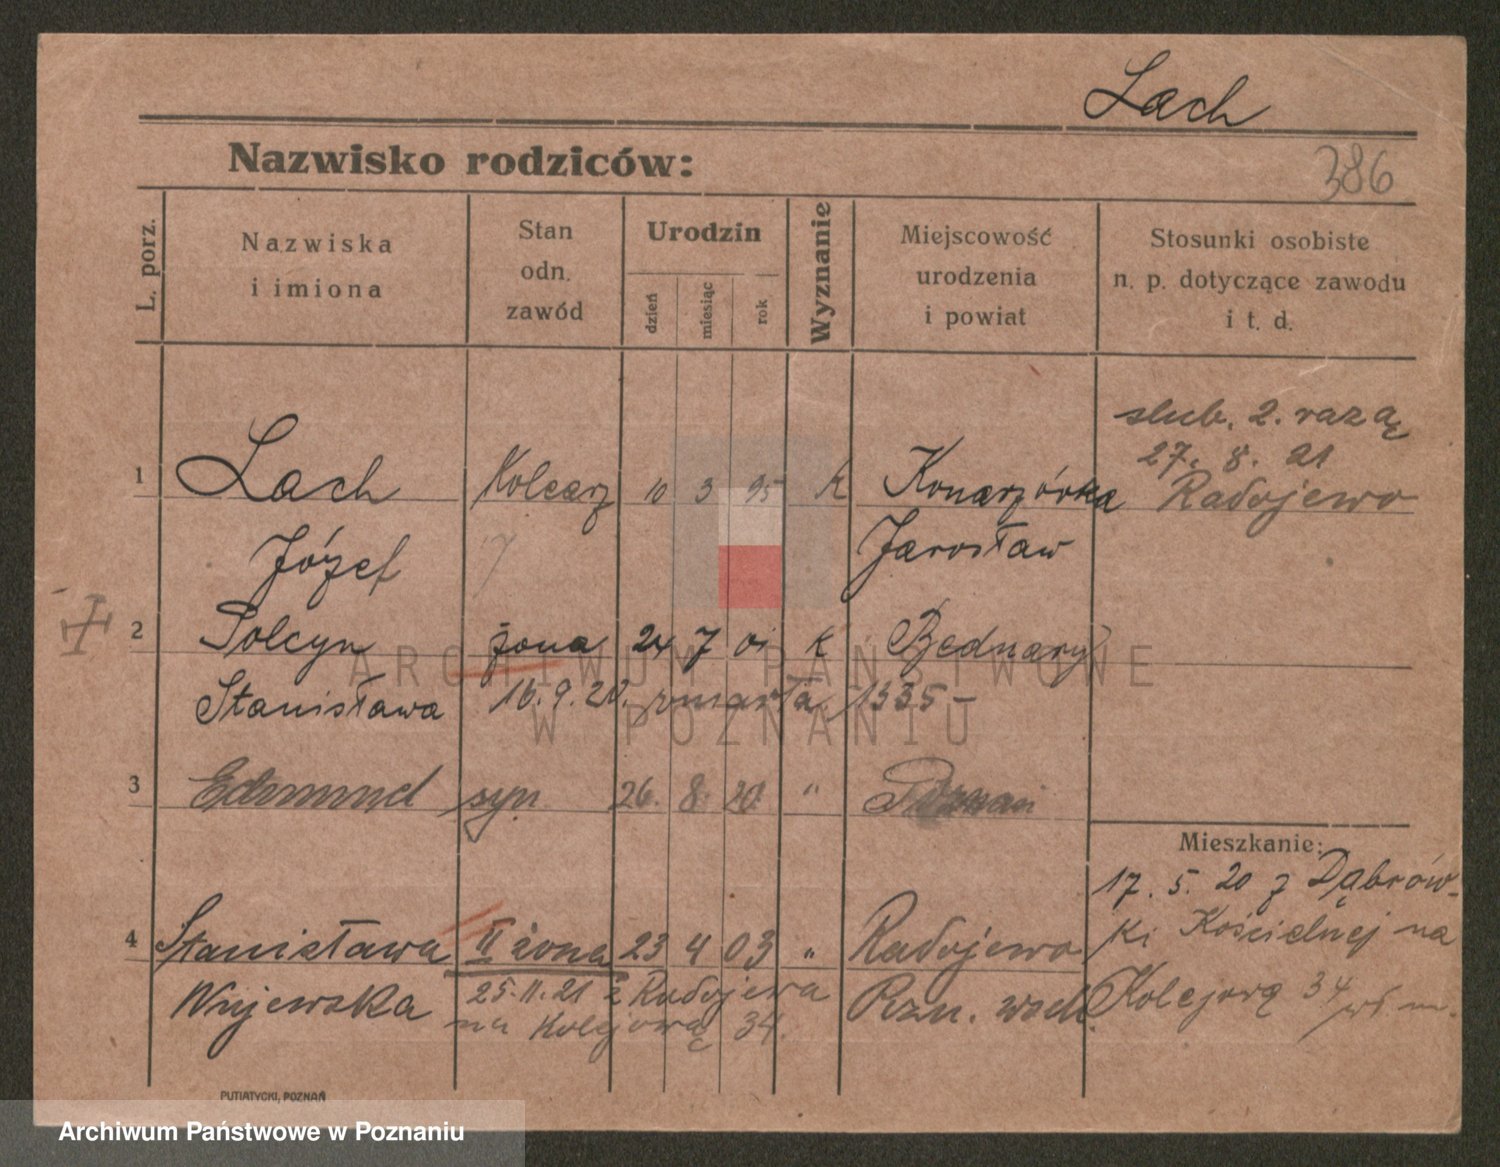 Lach
Nazwisko rodziców:
386
L. porz.
Nazwiska
i imiona
Stan
odn.
zawód
Urodzin
dzień
miesiąc
rok
Wyznanie
Miejscowość
urodzenia
i powiat
Stosunki osobiste
n. p. dotyczące zawodu
i t. d.
slub. 2. raz
27. 8. 21
Radojewo
1 Lach Kolearz 10 3 95 K Konarzówka
Józef Jarosław
2 Polcyn żona 24 7 01 k Bednary
Stanisława 16. 9. 20. zmarła 1935 -
3 Edmund syn 26. 8. 20. " Poznań
Mieszkanie:
17. 5. 20 z Dąbrów-
ki Kościelnej na
Kolejorą 34
4 Stanisława II żona 23 4 03 " Radojewo
Wujewska 25. 11. 21 z Radojewa Pozn. wsch.
na Kolejową 34.
PUTIATYCKI, POZNAŃ
ARCHIWUM PAŃSTWOWE
W POZNANIU
Archiwum Państwowe w Poznaniu